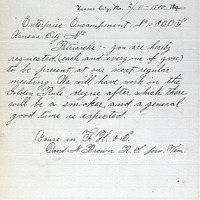 Kansas City, Mo. 2/11-1890.
Enterprise Encampment No 11 I.O.O.F.
Kansas City Mo
Patriarchs:- you are hereby
requested, (each and every one of you)
to be present at our next regular
meeting. We will have work in the
Golden Rule degree after which there
will be a smoker, and a general
good time is expected.
Yours in F. H. & C.
David N. Brown R. S. pro. Tem.